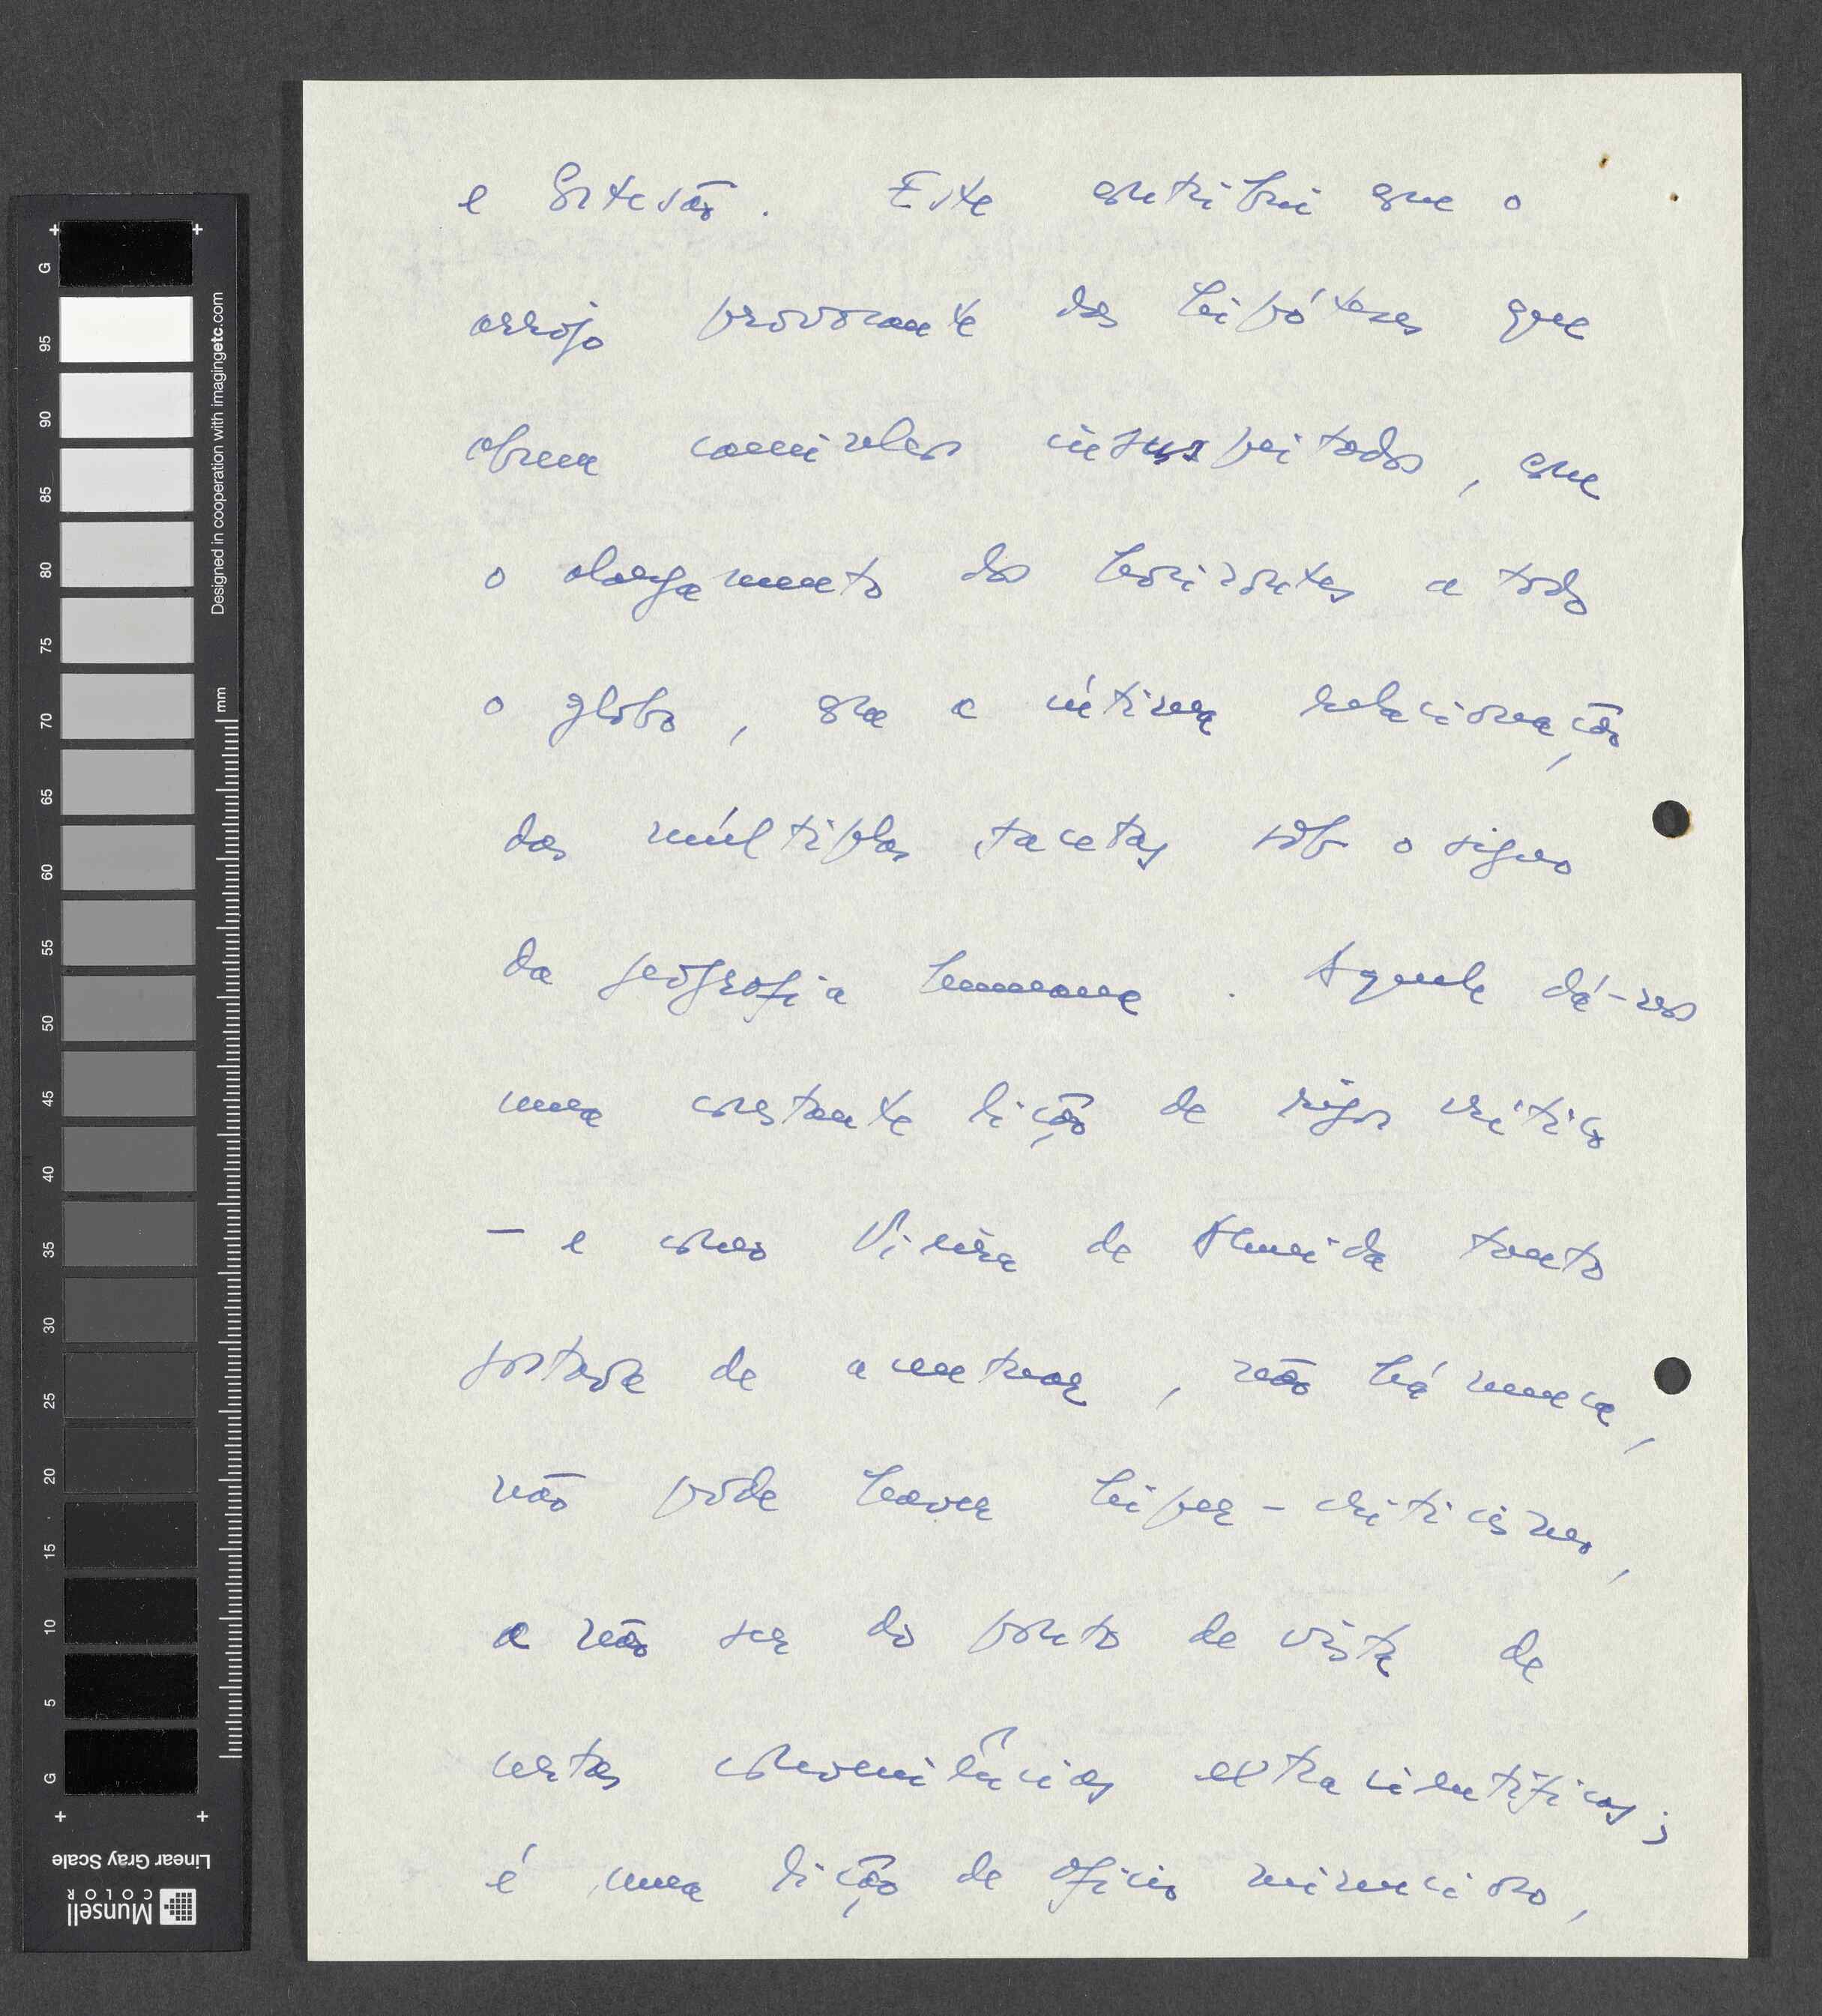 e Cortesão. Este contribui com o
arrojo provocante das hipóteses que
abrem caminhos insuspeitados, com
o alargamento dos horizontes a todo
o globo, com a íntima relacionação
das múltiplas facetas sôb o signo
da geografia humana. Aquele dá-nos
uma constante lição de rigor crítico
– e como Vieira de Almeida tanto
gostava de acentuar, não há nunca,
não pode haver hiper-criticismo,
a não ser do ponto de vista de
certas conveniências extracientíficas;
é uma lição de ofício minucioso,
G
95
90
85
80
75
70
65
60
55
50
45
40
35
30
25
20
15
10
5
G
mm
Designed in cooperation with imagingetc.com
Linear Gray Scale
Munsell
COLOR